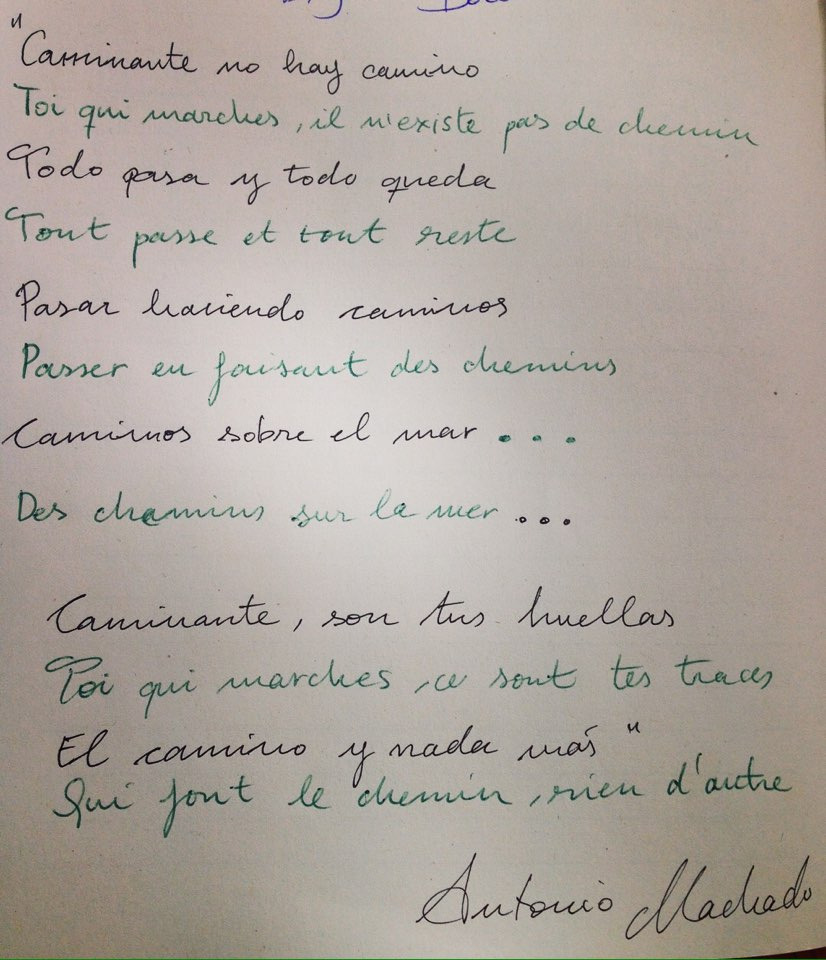 "Caminante no hay camino
Toi qui marches, il n'existe pas de chemin
Todo pasa y todo queda
Tout passe et tout reste
Pasar haciendo caminos
Passer en faisant des chemins
Caminos sobre el mar...
Des chemins sur la mer...
Caminante, son tus huellas
Toi qui marches, ce sont tes traces
El camino y nada más"
Qui font le chemin, rien d'autre
Antonio Machado